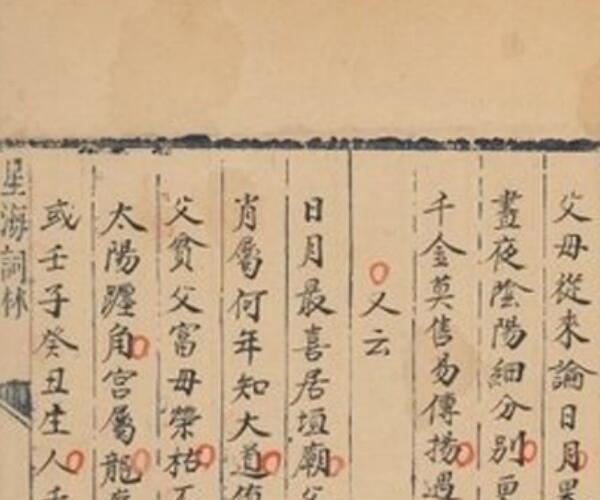 父母從來論日月
晝夜陰陽細分別
千金莫售易傳揚遇
又云
日月最喜居垣廟
肖屬何年知大道
父貧父富母榮枯
太陽躔角宮屬龍
或壬子癸丑生人
星海詞林